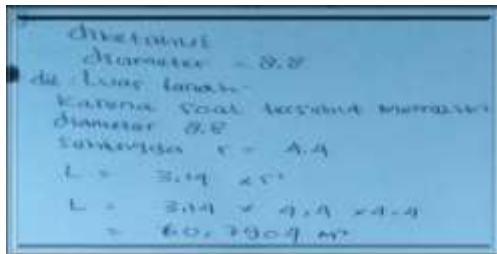 diketahui
diameter = 8.8
dit : Luas tanah
Karena soal tersebut memiliki
diameter 8.8
sehingga r = 4.4
L = 3,14 x r²
L = 3,14 x 4,4 x 4.4
= 60,7904 m²